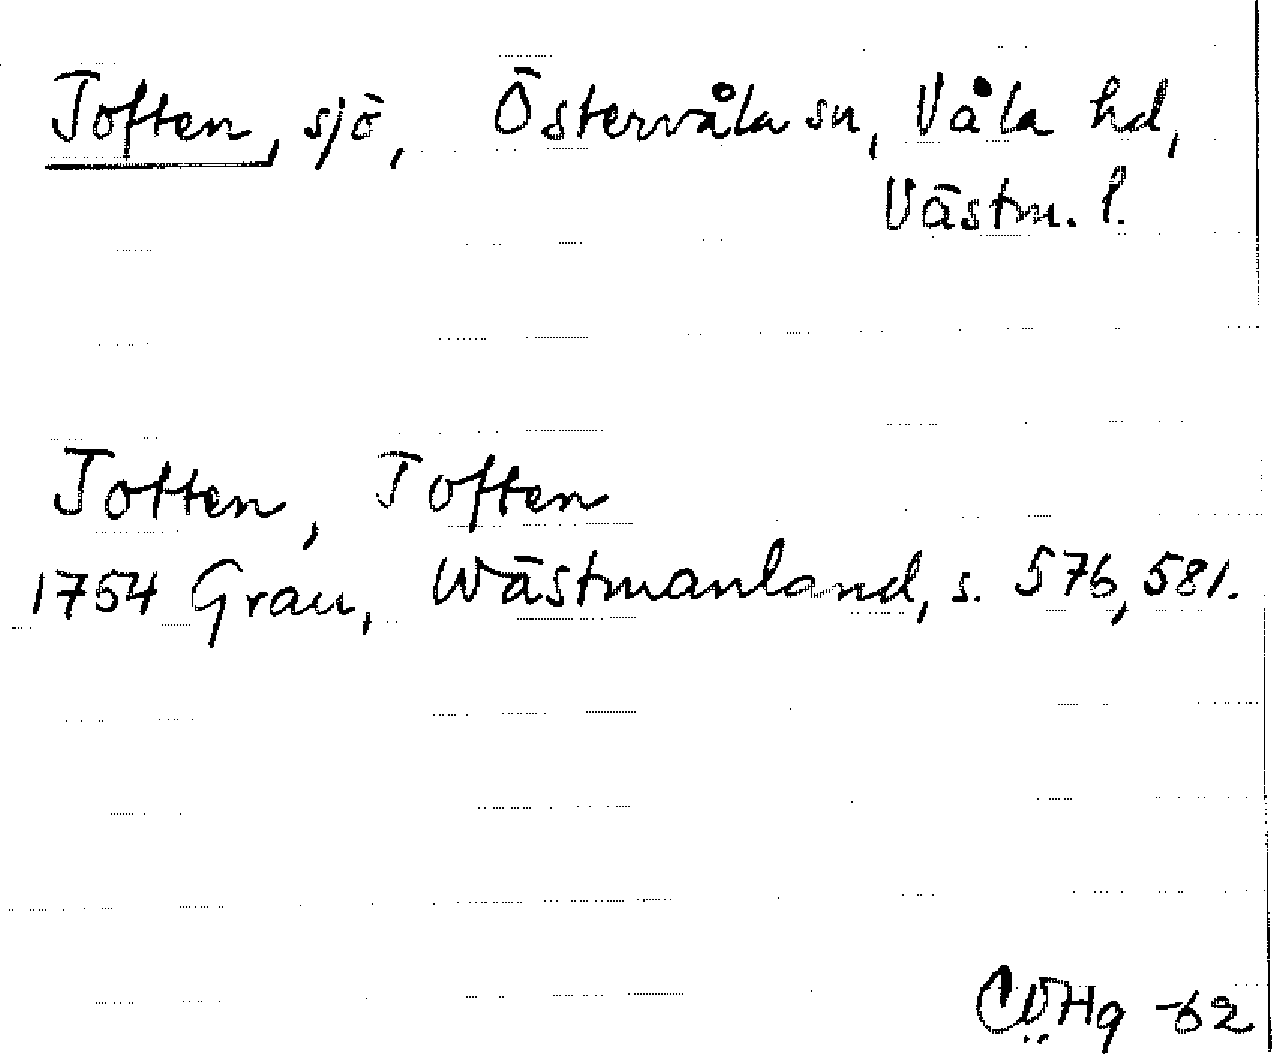 Toften, sjö, Östervåla sn, Våla hd,
Västm. l.
Totten, Toften
1754 Grau, Wästmanland, s. 576, 581.
-62